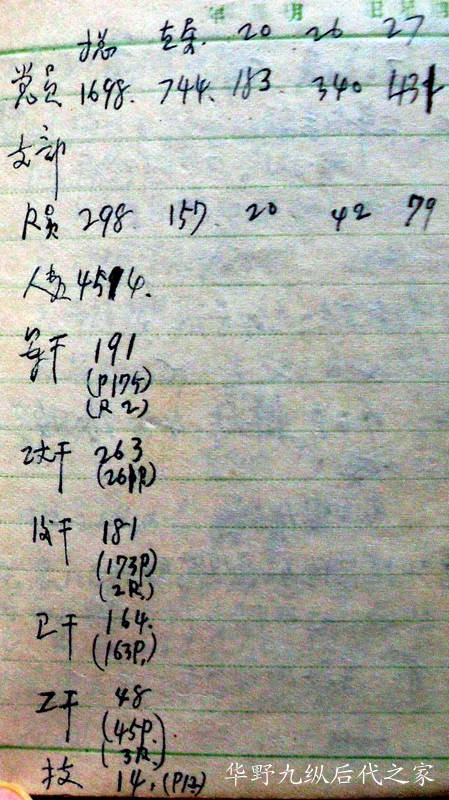 年 月 日
总 直属 20 26 27
党员 1698. 744. 183. 340 431
支部
R员 298. 157. 20 42 79
人数 4514.
军干 191
(P175)
(R 2)
政干 263
(261P.)
后干 181
(173P)
(2R.)
卫干 164.
(163P.)
工干 48
(45P.)
(3R.)
技 14. (P12)
华野九纵后代之家